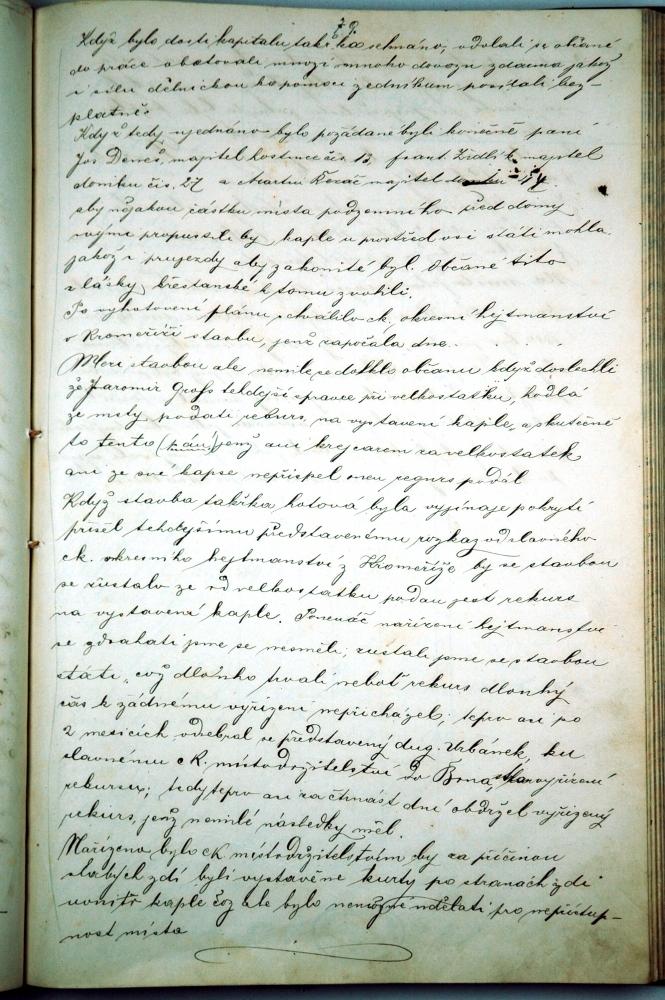 79.
Když bylo dosti kapitalu takřka sehnáno, odvolali se občané
do práce a bětovali mnozí mnoho dovozu zdarma jakož
i sílu dělnickou ku pomoci zedníkum posílali bez-
platně.
Když tedy ujednáno bylo požádané byli konečně paní
Jos Deneš, majitel hostince čís. 13, frant. Zidlík majitel
domku čís. 27 a Martin Kováč majitel
aby nějakou částku místa podzemního před domy
svými propustili by kaple u prostřed vsi státi mohla
jakož i prujezdy aby zakonité byl. Občané tito
z lásky křestanské k tomu svolili.
Po vyhotovení plánu schválilo ck, okresní hejtmanství
v Kroměříži stavbu, jenž započala dne . . . . .
Mezi stavbou ale nemile se dotklo občanu když doslechli
že Jaromir Grofs tehdejší spravce při velkostatku, hodlá
ze msty podati rekurs na vystavení kaple, a skutečně
to tento (pán) jenž ani krejcarem za velkostatek
ani ze své kapse nepřispěl onen regurs podál
Když stavba takřka hotová byla vyjínaje pokrytí
přišel tehdejšímu představenému rozkaz od slavného
ck. okresního hejtmanství z Kroměříže by se stavbou
se zustalo ze od velkostatku podan jest rekurs
na vystavení kaple. Poněvač nařízení hejtmanství
se zdráhati jsme se nesměli, zustali jsme se stavbou
státi, což dlouho trvali neboť rekurs dlouhý
čas k žádnému vyřízení nepřicházel; teprv asi po
2 mesicích odebral se představený Aug. Urbánek, ku
slavnému cK. místodržitelství do Brna, vyřízení
rekursu; tedy teprv asi za čtrnást dní obdržel vyřízený
rekurs, jenž nemilé následky měl.
Nařízeno bylo cK místodržitelstvím by za příčinou
slabých zdí byli vystavěné kurty po stranách zdi
uvnitř kaple což ale bylo nemožné udělati pro nepřístup-
nost místa